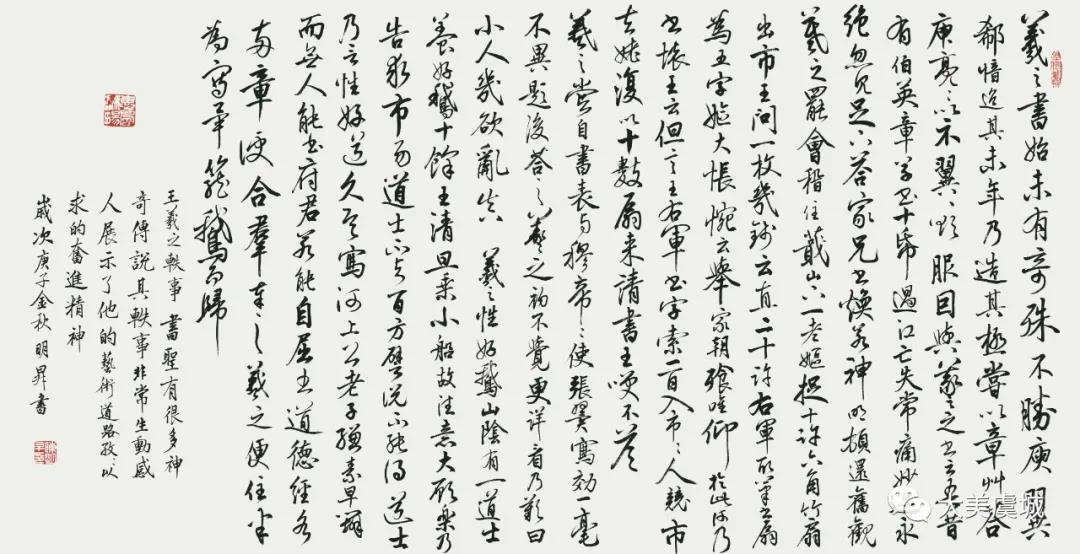 羲之書始未有奇殊不勝庾翼
郗愔迨其末年乃造其極嘗以章艸答
庾亮亮以示翼翼歎服因與羲之書云吾昔
有伯英章草書十紙過江亡失常痛妙跡永
絶忽見足下答家兄書煥若神明頓還舊觀
羲之罷會稽住蕺山下一老嫗捉十許六角竹扇
出市王問一枚幾錢云直二十許右軍取筆書扇
為五字嫗大悵惋云舉家朝飡唯仰於此何乃
書壞王云但言王右軍書字索一百入市市人競市
去姥復以十數扇来請書王笑不答
羲之嘗自書表與穆帝帝使張翼寫効一毫
不異題後答之羲之初不覺更詳看乃歎曰
小人幾欲亂真 羲之性好鵝山陰有一道士
養好鵝十餘王清旦乗小船故往意大願樂乃
告求市易道士不與百方譬說不能得道士
乃言性好道久欲寫河上公老子縑素早辦
而無人能書府君若能自屈書道德經各
兩章便合羣奉之羲之便住半
為寫畢籠鵝而歸
王羲之軼事 書聖有很多神
奇傳說其軼事非常生動感
人展示了他的藝術道路孜孜以
求的奮進精神
歲次庚子金秋明昇書
大美虞城